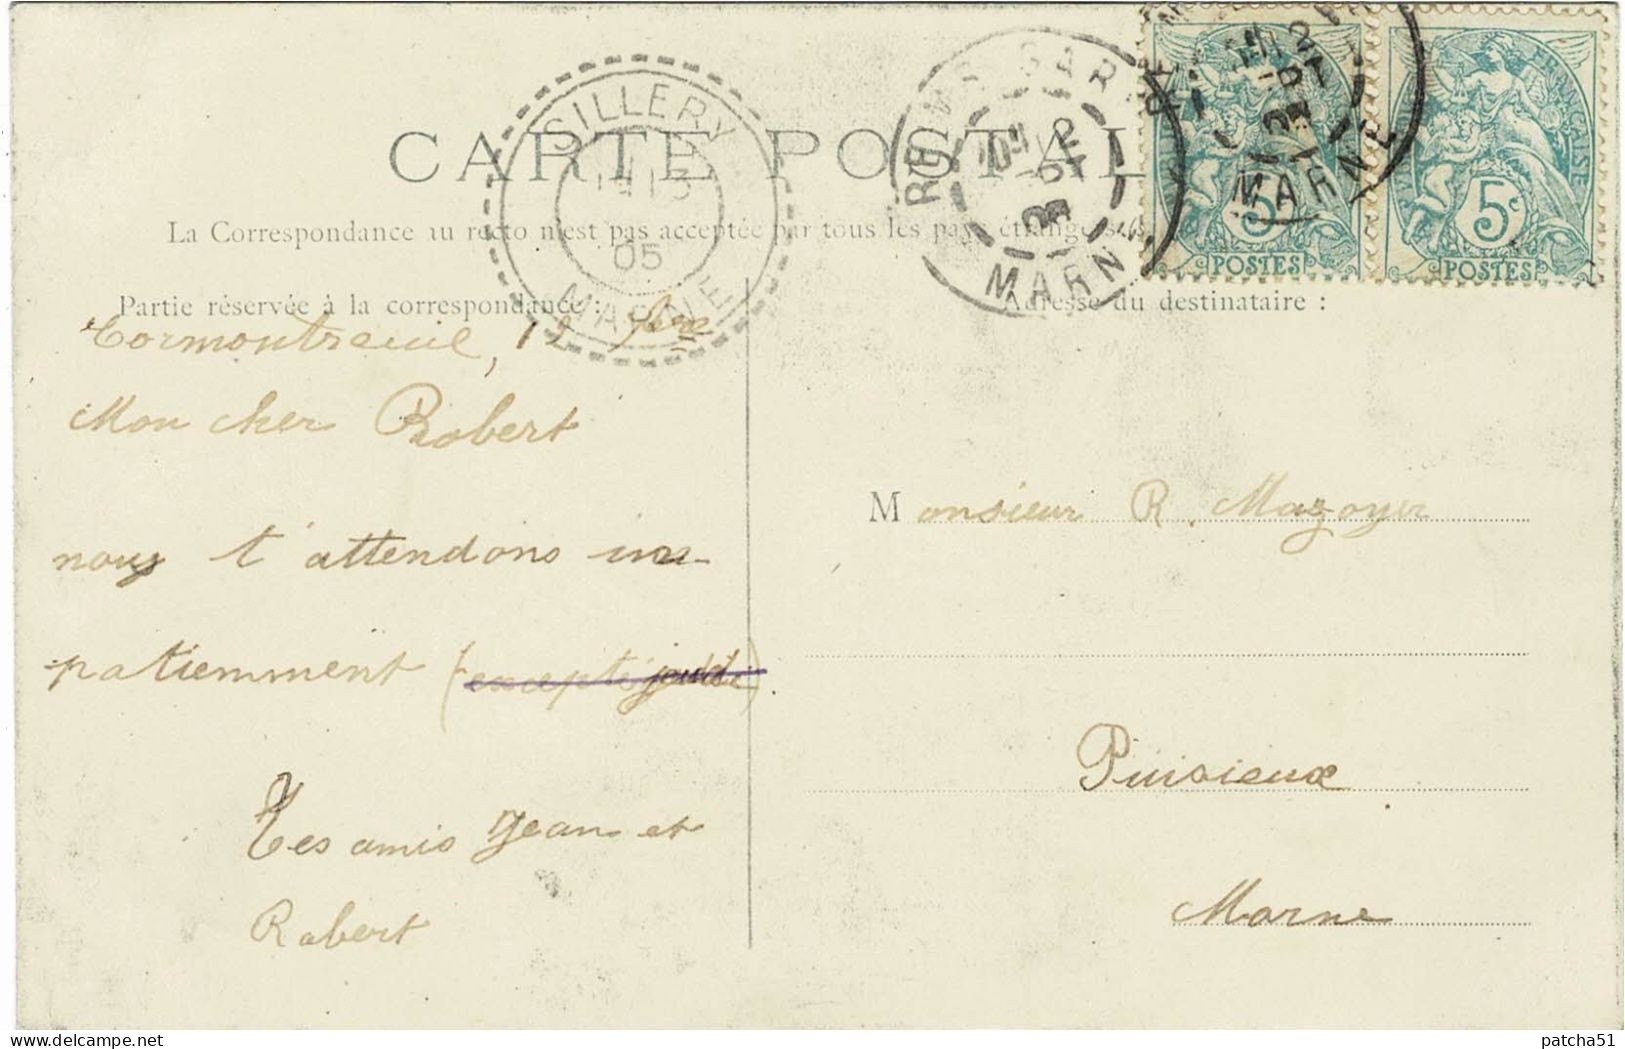 CARTE POSTALE
La Correspondance au recto n'est pas acceptée par tous les pays étrangers
Partie réservée à la correspondance :
Adresse du destinataire :
SILLERY
13
05
MARNE
REIMS GARE
MARNE
MARNE
5c
POSTES
RÉPUBLIQUE FRANÇAISE
5c
POSTES
Cormontreuil, 12
Mon cher Robert
nous t'attendons im-
patiemment (excepté jeudi)
Tes amis Jean et
Robert
Monsieur R. Mazoyer
Puisieux
Marne
delcampe.net
patcha51